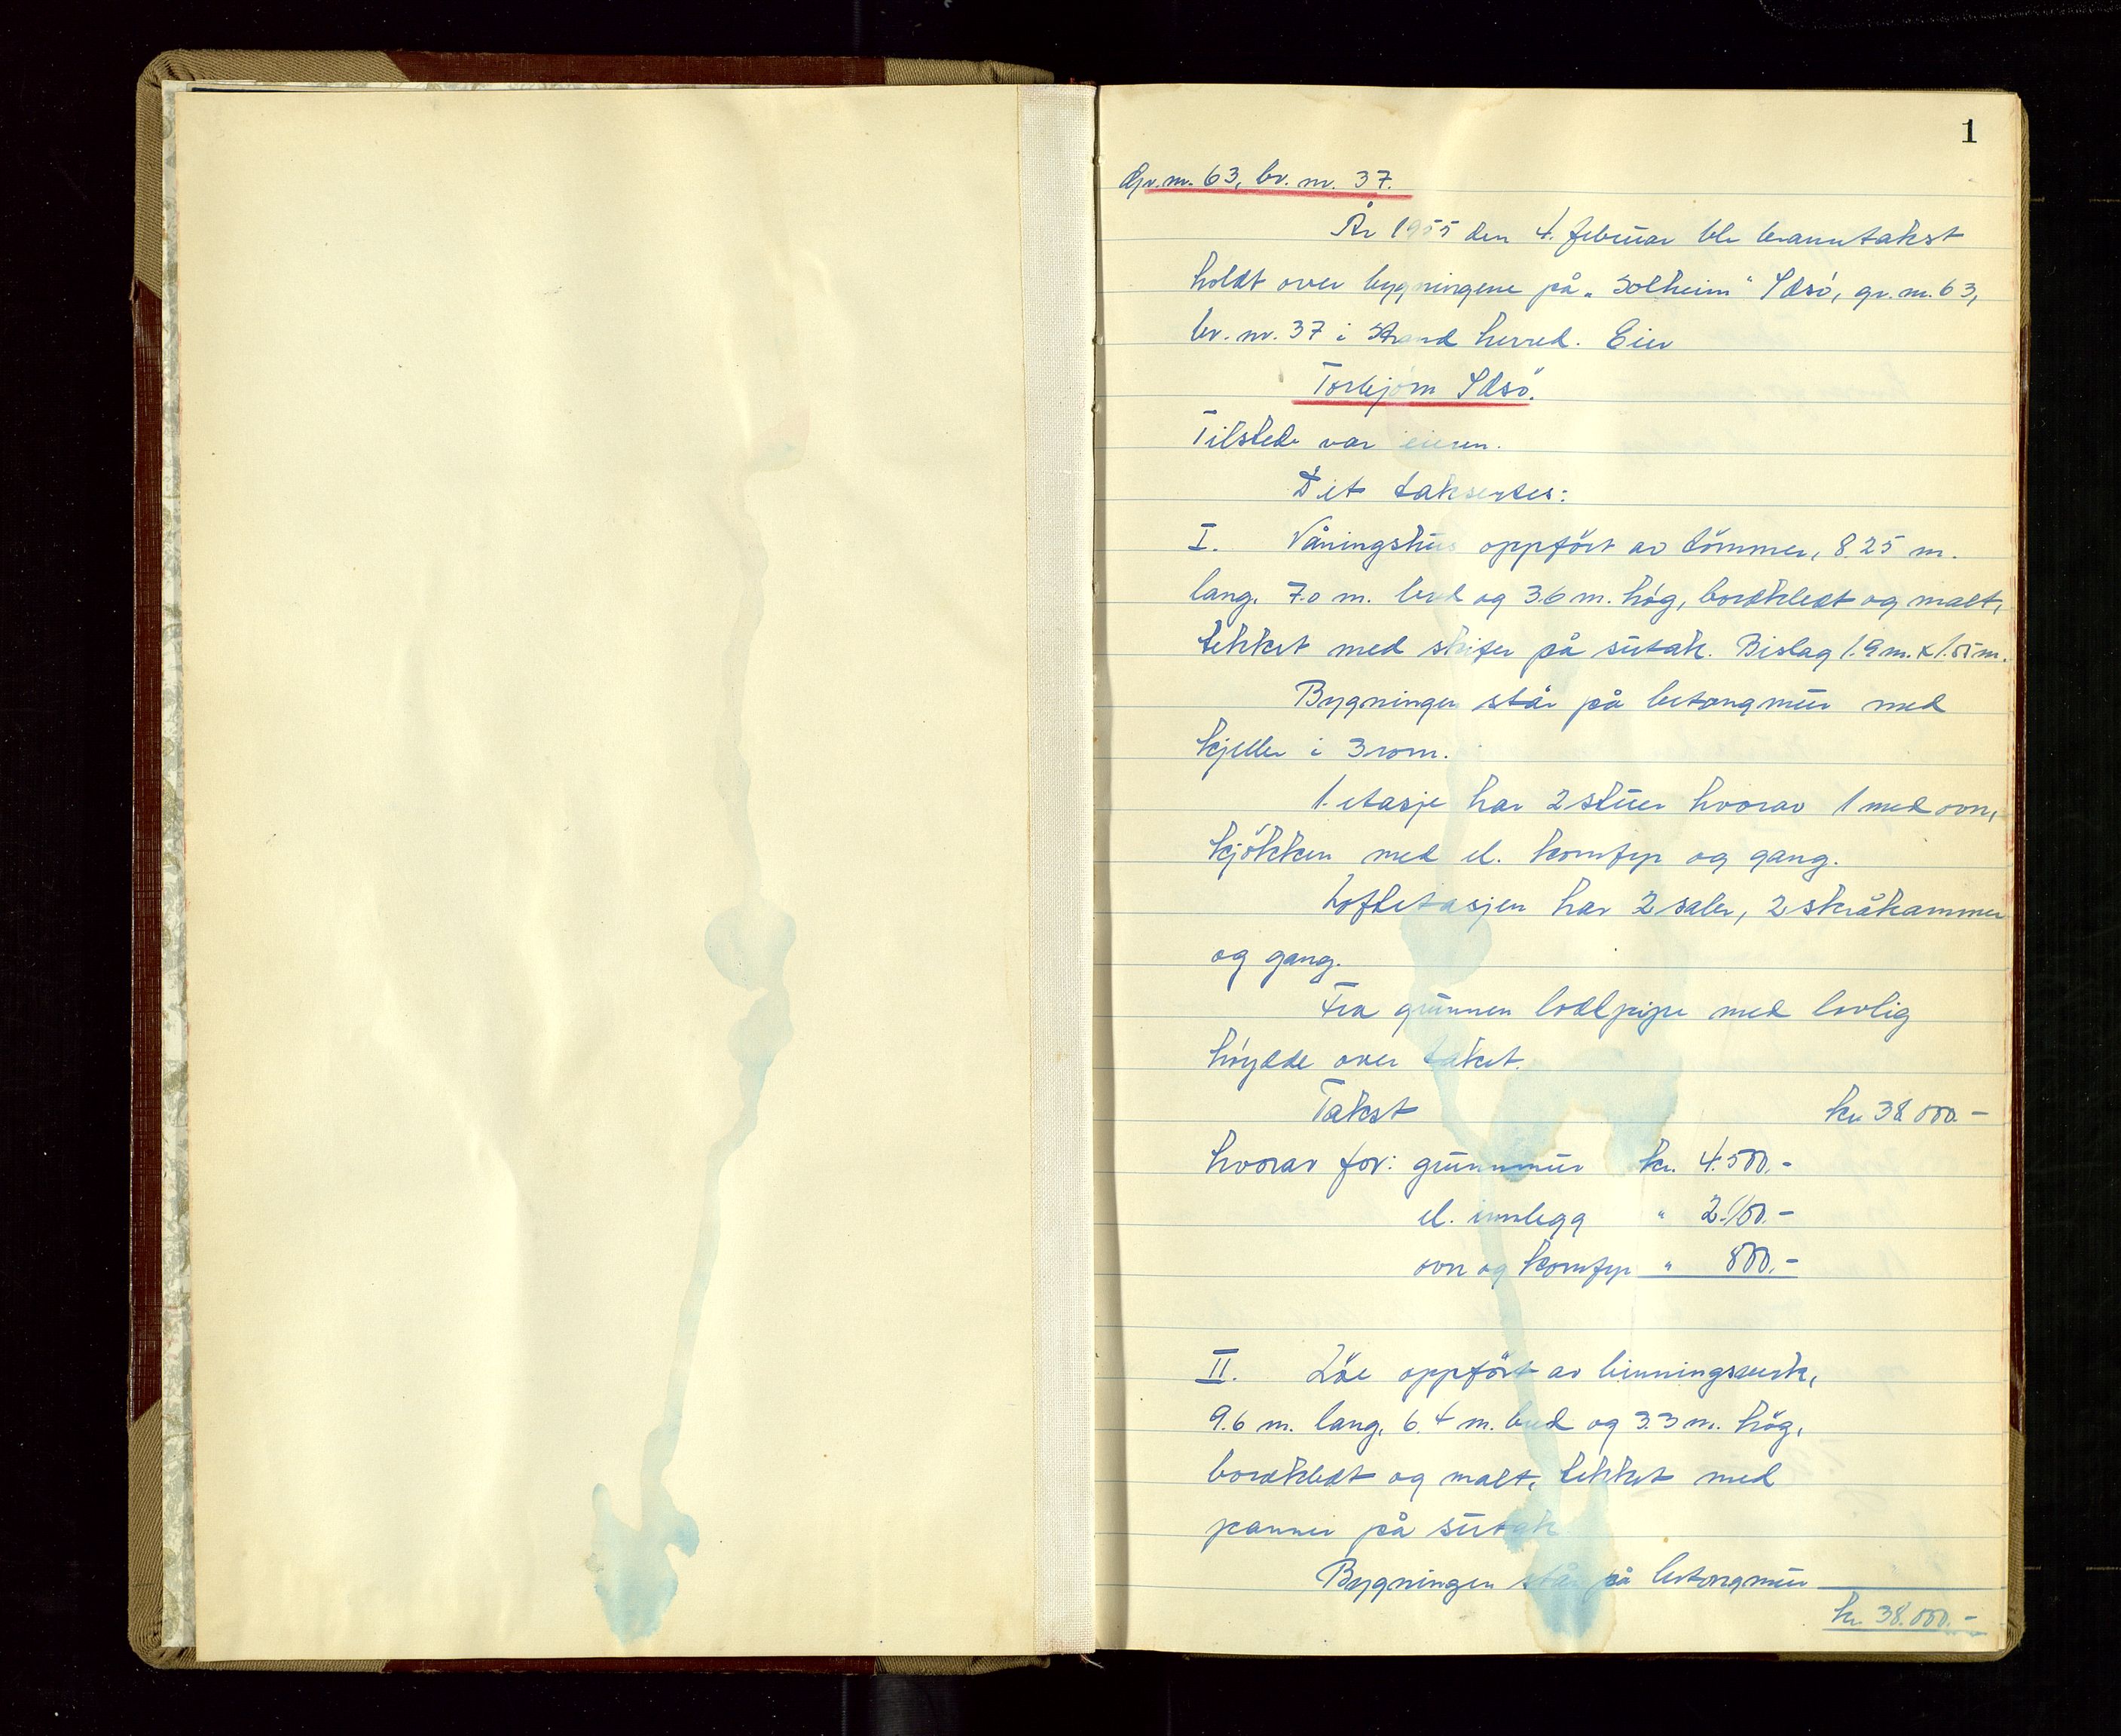 1
Gr. nr. 63, br. nr. 37.
År 1955 den 4. februar ble branntakst
holdt over bygningene på „Solheim" Idsö, gr. nr. 63,
br. nr. 37 i Strand herred. Eier
Torbjörn Idsö.
Tilstede var eieren.
Det taksertes:
I. Våningshus oppfört av tömmer, 8.25 m.
lang, 7.0 m. bred og 3.6 m. hög, bordkledt og malt,
tekket med skifer på sutak. Bislag 1.9 m. x 1.55 m.
Bygningen står på betongmur med
kjeller i 3 rom.
1. etasje har 2 stuer hvorav 1 med ovn,
kjökken med el. komfyr og gang.
Loftetasjen har 2 saler, 2 skråkammer
og gang.
Fra grunnen loddpipe med lovlig
höydde over taket.
Takst kr. 38.000.-
hvorav for: grunnmur kr. 4.500.-
el. innlegg " 2.150.-
ovn og komfyr " 800.-
II. Löe oppfört av binningsverk,
9.6 m. lang, 6.4 m. bred og 3.3 m. hög,
bordkledt og malt, tekket med
panner på sutak
Bygningen står på betongmur
kr. 38.000.-